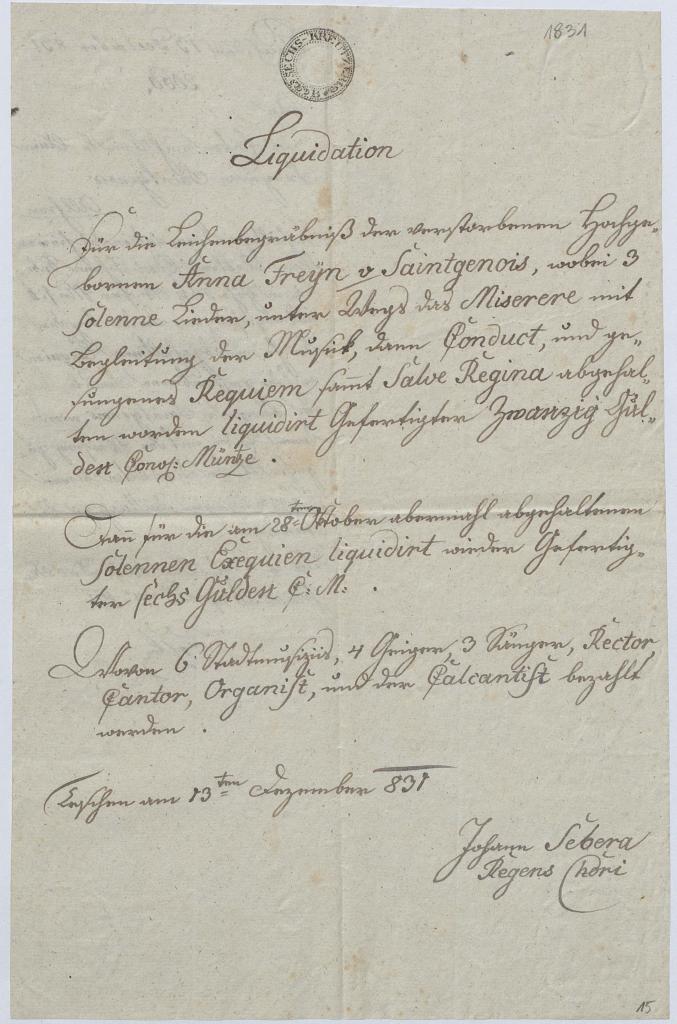 1831
SECHS-KREUTZER
Liquidation
Für die Leichenbegräbniß der verstorbenen Hochge-
bornen Anna Freyn v Saintgenois, wobei 3
solenne Lieder, unter Wegs das Miserere mit
Begleitung der Musick, dann Conduct, und ge-
sungenes Requiem sammt Salve Regina abgehal-
ten worden liquidirt Gefertigter Zwanzig Gul-
den Conv: Müntze.
Dann für die am 28ten Oktober abermahl abgehaltenen
solennen Exequien liquidirt wieder Gefertig-
ter sechs Gulden C: M: .
Wovon 6 Stadtmusizis, 4 Geiger, 3 Sänger, Rector,
Cantor, Organist, und der Calcantist bezahlt
werden .
Teschen am 13ten Dezember 831
Johann Sebera
Regens Chori
15